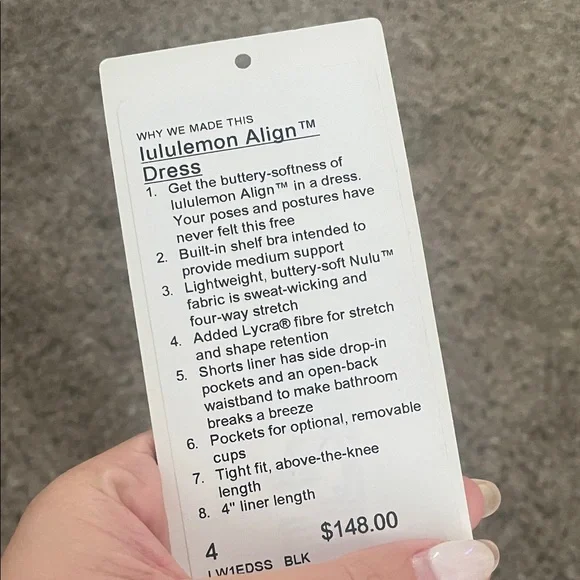 WHY WE MADE THIS
lululemon Align™
Dress
1. Get the buttery-softness of
lululemon Align™ in a dress.
Your poses and postures have
never felt this free
2. Built-in shelf bra intended to
provide medium support
3. Lightweight, buttery-soft Nulu™
fabric is sweat-wicking and
four-way stretch
4. Added Lycra® fibre for stretch
and shape retention
5. Shorts liner has side drop-in
pockets and an open-back
waistband to make bathroom
breaks a breeze
6. Pockets for optional, removable
cups
7. Tight fit, above-the-knee
length
8. 4" liner length
4 $148.00
LW1EDSS BLK